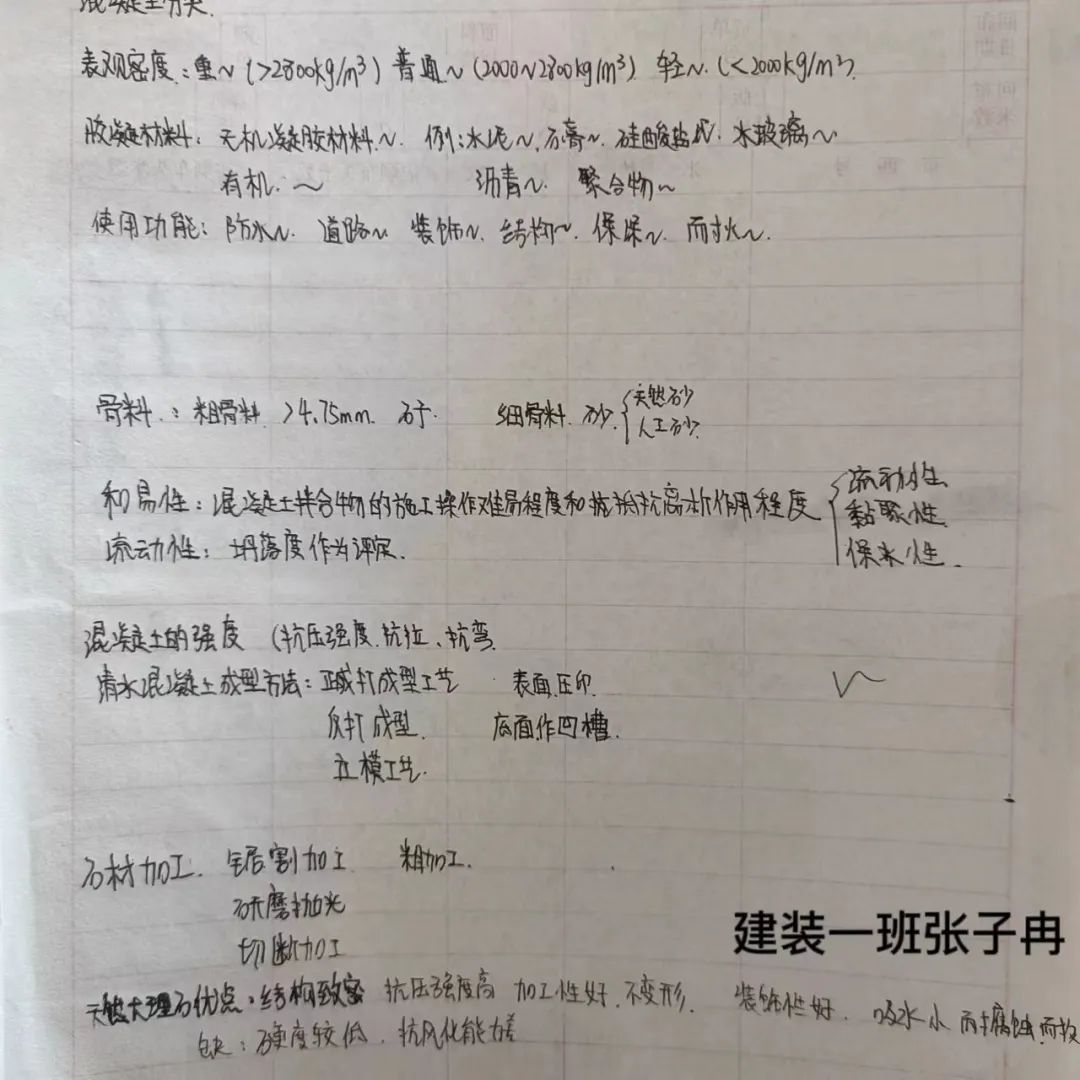 混凝土分类.
表观密度：重~（>2800kg/m³）普通~（2000~2800kg/m³）. 轻~.（<2000kg/m³）.
胶凝材料：无机凝胶材料~. 例：水泥~, 石膏~. 硅酸盐~. 水玻璃~
有机. ~ 沥青~. 聚合物~
使用功能：防水~. 道路~ 装饰~. 结构~. 保温~. 耐火~.
骨料：粗骨料 >4.75mm. 石子. 细骨料. 砂. 天然砂
人工砂.
和易性：混凝土拌合物的施工操作难易程度和抵抗离析作用程度 流动性.
黏聚性.
保水性.
流动性：坍落度作为评定.
混凝土的强度（抗压强度.抗拉、抗弯.
清水混凝土成型方法：正打成型工艺 · 表面压印.
反打成型. 底面作凹槽.
立模工艺.
石材加工. 锯割加工 粗加工.
研磨抛光
切断加工
建装一班张子冉
天然大理石优点：结构致密 抗压强度高 加工性好. 不变形. 装饰性好. 吸水小 耐腐蚀.耐
缺：硬度较低. 抗风化能力差